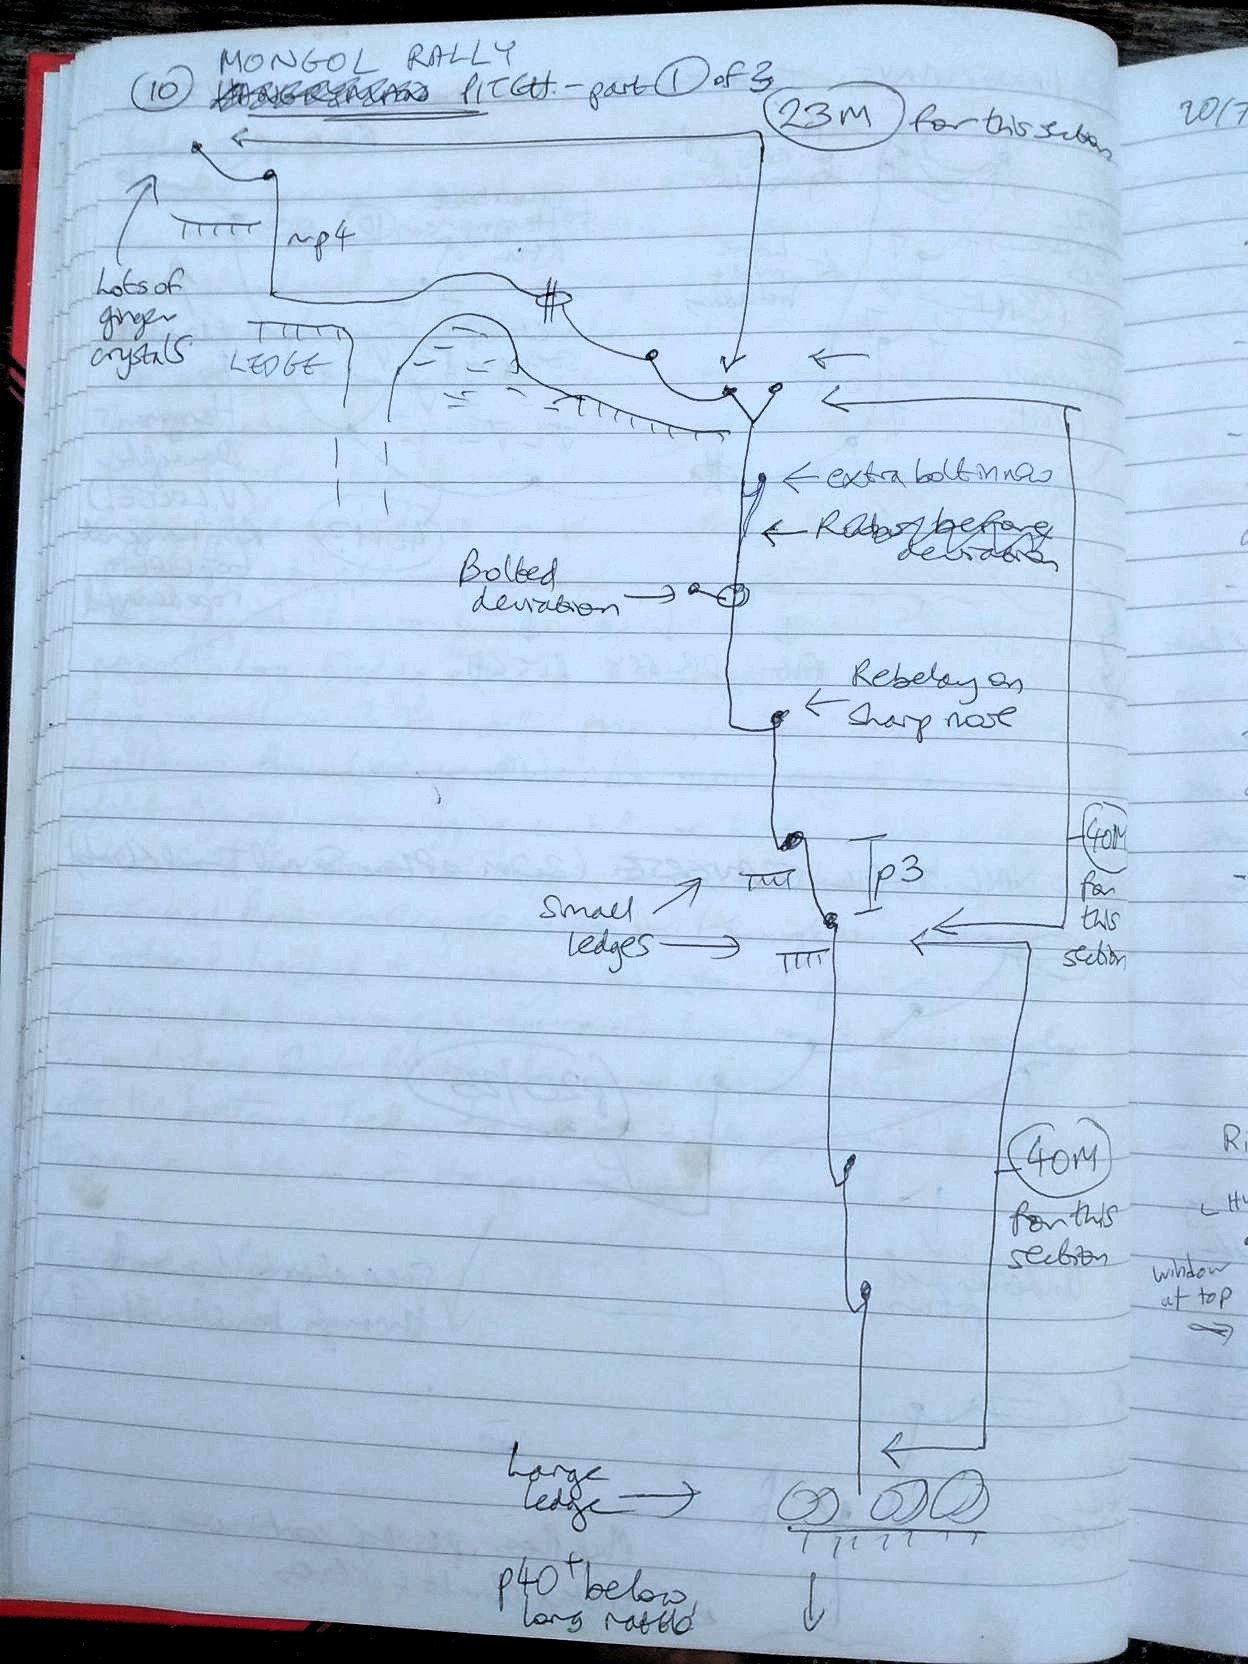 MONGOL RALLY
(10) PITCH - part (1) of 3
23M for this section
mp4
Lots of
ginger
crystals
LEDGE
← extra bolt in now
deviation
Bolted
deviation →
Rebelay on
sharp nose
p3
40M
for
this
section
Small
ledges →
40M
for this
section
Large
ledge →
p40+ below,
long rattle
20/7
window
at top